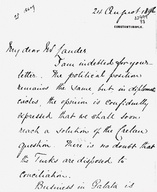 24 August 1897
CONSTANTINOPLE
My dear Mr Lander
I am indebted for your
letter. The political position
remains the same but in diplomatic
circles, the opinion is confidently
expressed that we shall soon
reach a solution of the Cretan
question. There is no doubt that
the Turks are disposed to
conciliation.
Business in Galata is